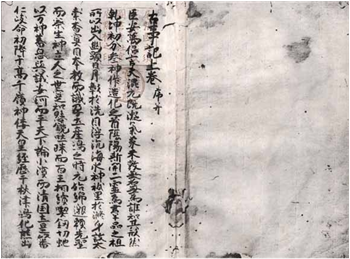 古事記上卷 序并
臣安萬侶言夫混元既凝氣象未效無名無爲誰知其形然
乾坤初分參神作造化之首陰陽斯開二靈爲群品之祖
所以出入幽顯日月彰於洗目浮沈海水神祇呈於滌身故
太素杳冥因本教而識孕土產嶋之時元始綿邈賴先聖
而察生神立人之世寔知懸鏡吐珠而百王相續喫釼切蛇
以万神蕃息歟議安河而平天下論小濱而清國土是以番
仁岐命初降于高千嶺神倭天皇經歷于秋津嶋化熊出